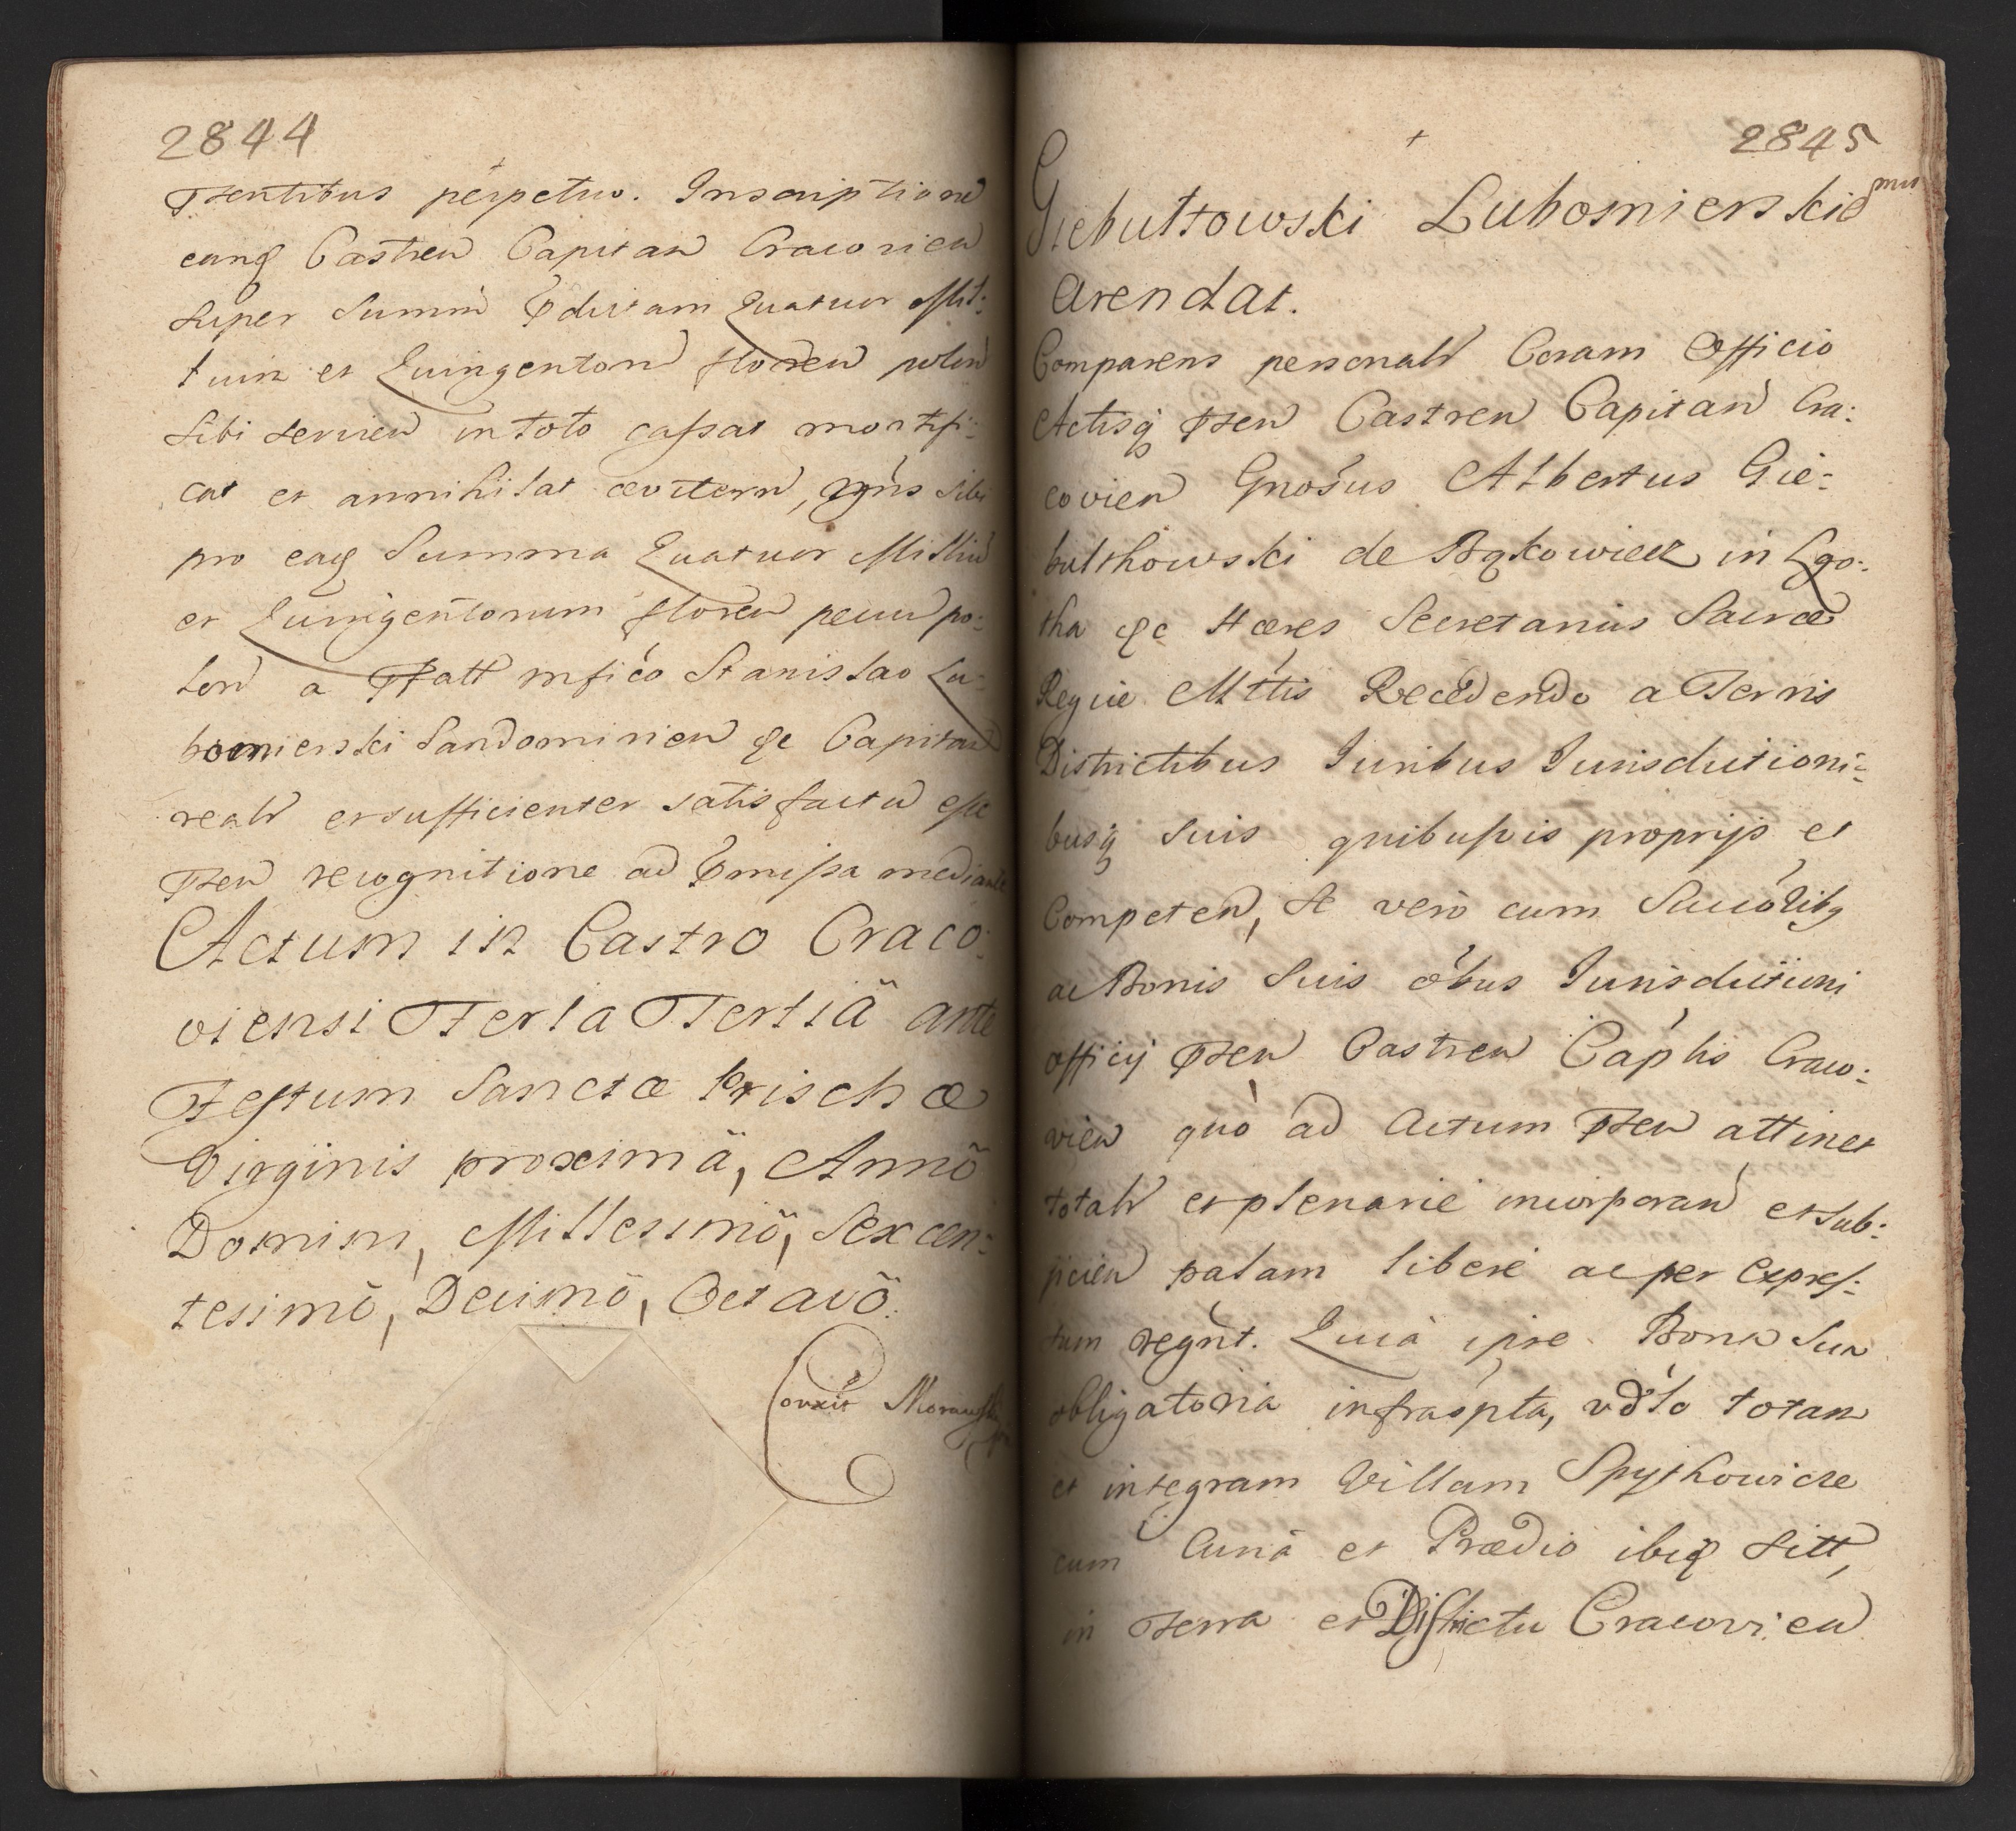 2844
Psentibus perpetuo. Inscriptione
eanq Castren Capitan Cracovien
super Summa Pdictam Quatuor Mil:
lium et Quingentoru floren polon
sibi servien in toto cassat mortifi:
cat et annihilat ævitern, cgns sibi
pro eaq Summa Quatuor Milliu
et Quingentorum floren pecun po:
lon a Pfatt mfico Stanislao Lu:
bomierski Sandomirien &c Capitan
realr et sufficienter satisfactu esse
Psen recognitione ad Pmissa mediante
Actum in Castro Craco:
viensi Feria Tertiâ ante
Festum Sanctæ Prischæ
Virginis proximâ, Annô
Domini, Millesimô, Sexcen:
tesimô, Decimô, Octavô.
Corexit Morawski
2845
Giebultowski Lubomierskio
Arendat.
Comparens personalr Coram Officio
Actisq Psen Castren Capitan Cra:
covien Gnosus Albertus Gie:
bulthowski de Bąkowiecz in Lgo:
tha &c Hæres Secretarius Sacræ
Regiæ Mttis Recedendo a Terris
Districtibus Iuribus Iurisdictioni:
busq suis quibusvis proprijs et
Competen, se vero cum Successoribq
ac Bonis Suis oibus Iurisdictioni
officij Psen Castren Capłis Craco:
vien quò ad Actum Psen attinet
totalr et plenarie incorporan et sub:
jicien palam libere ac per Expres:
sum regnt. Quià ipse Bona Sua
obligatoria infrascpta, vdło totam
et integram Villam Spythkowicze
cum Curiâ et Prædio ibiq sitt,
in Terra et Districtu Cracovien